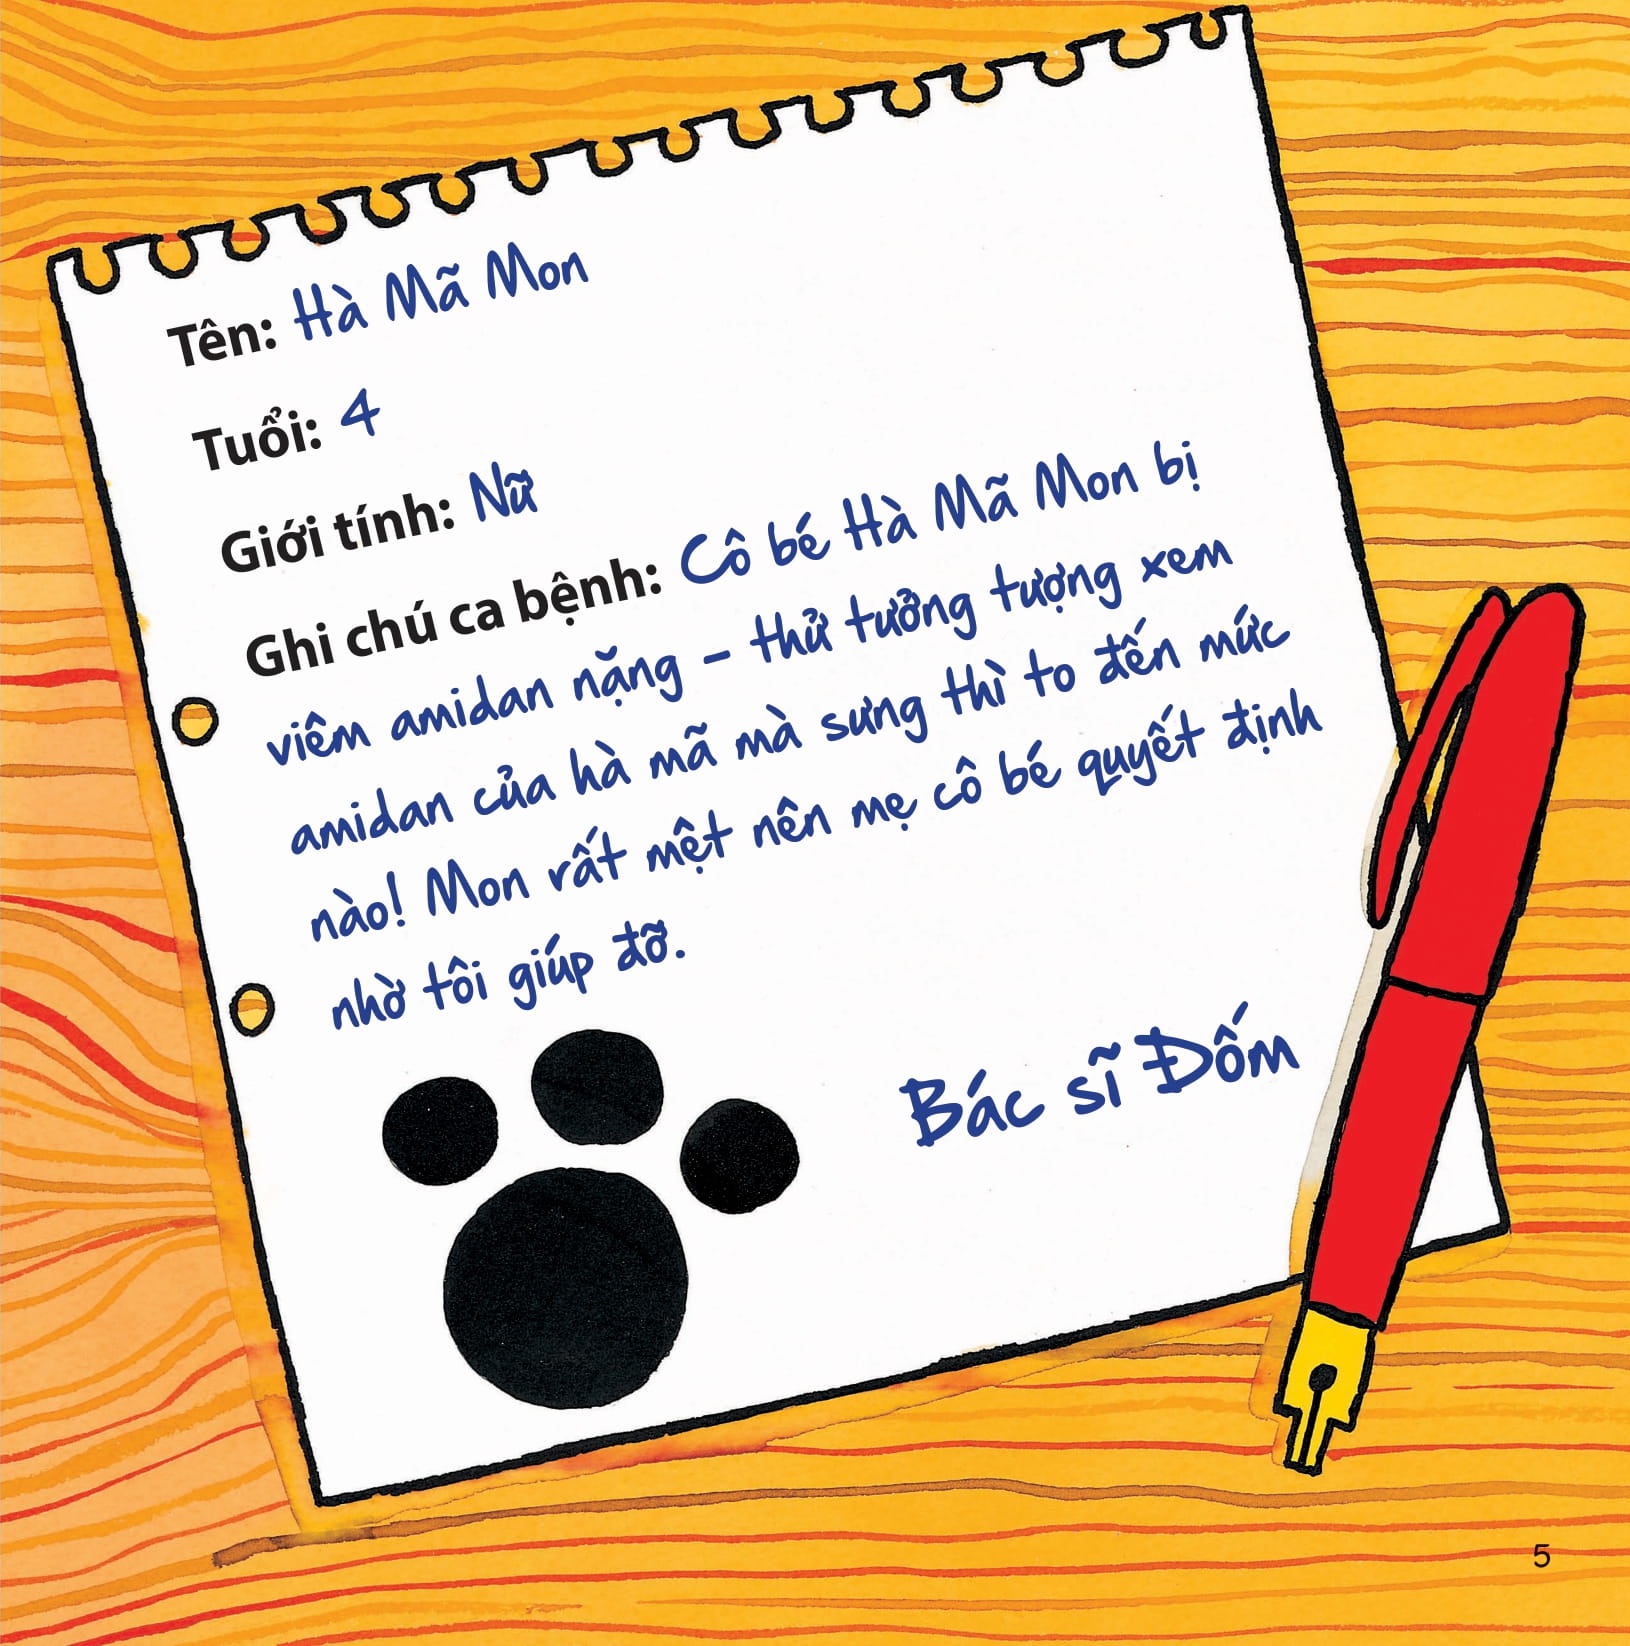 Tên: Hà Mã Mon
Tuổi: 4
Giới tính: Nữ
Ghi chú ca bệnh: Cô bé Hà Mã Mon bị
viêm amidan nặng – thử tưởng tượng xem
amidan của hà mã mà sưng thì to đến mức
nào! Mon rất mệt nên mẹ cô bé quyết định
nhờ tôi giúp đỡ.
Bác sĩ Đốm
5